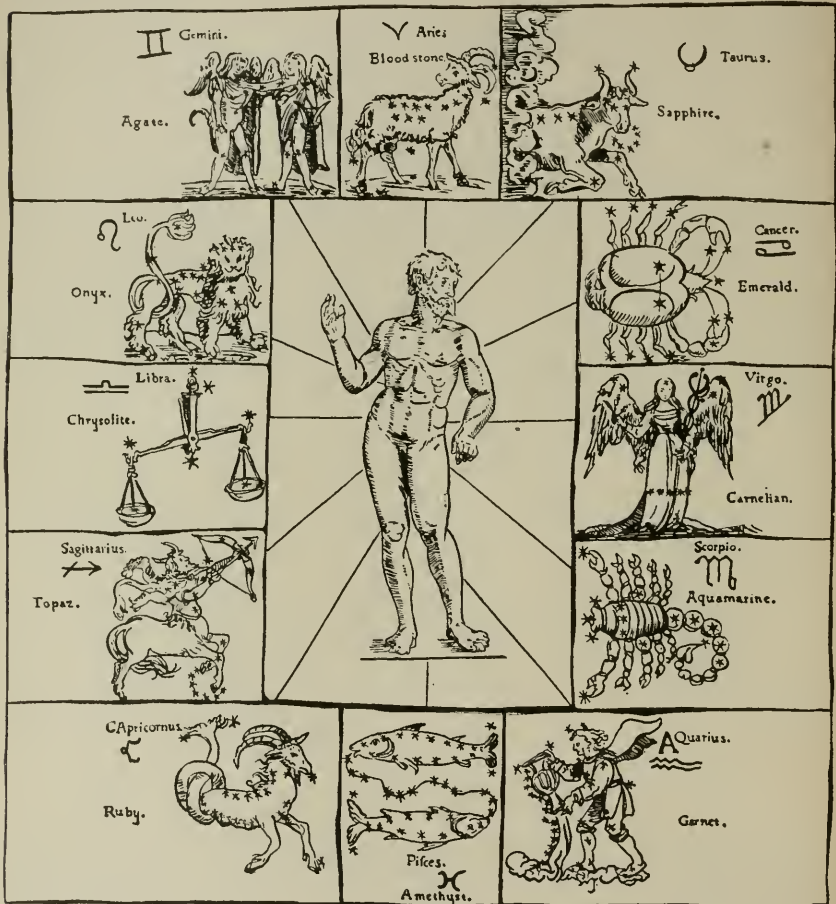 Gemini.
Agate.
Aries
Bloodstone.
Taurus.
Sapphire.
Leo.
Onyx.
Cancer.
Emerald.
Libra.
Chrysolite.
Virgo.
Carnelian.
Sagittarius.
Topaz.
Scorpio.
Aquamarine.
CApricornus.
Ruby.
Pisces.
Amethyst.
AQuarius.
Garnet.